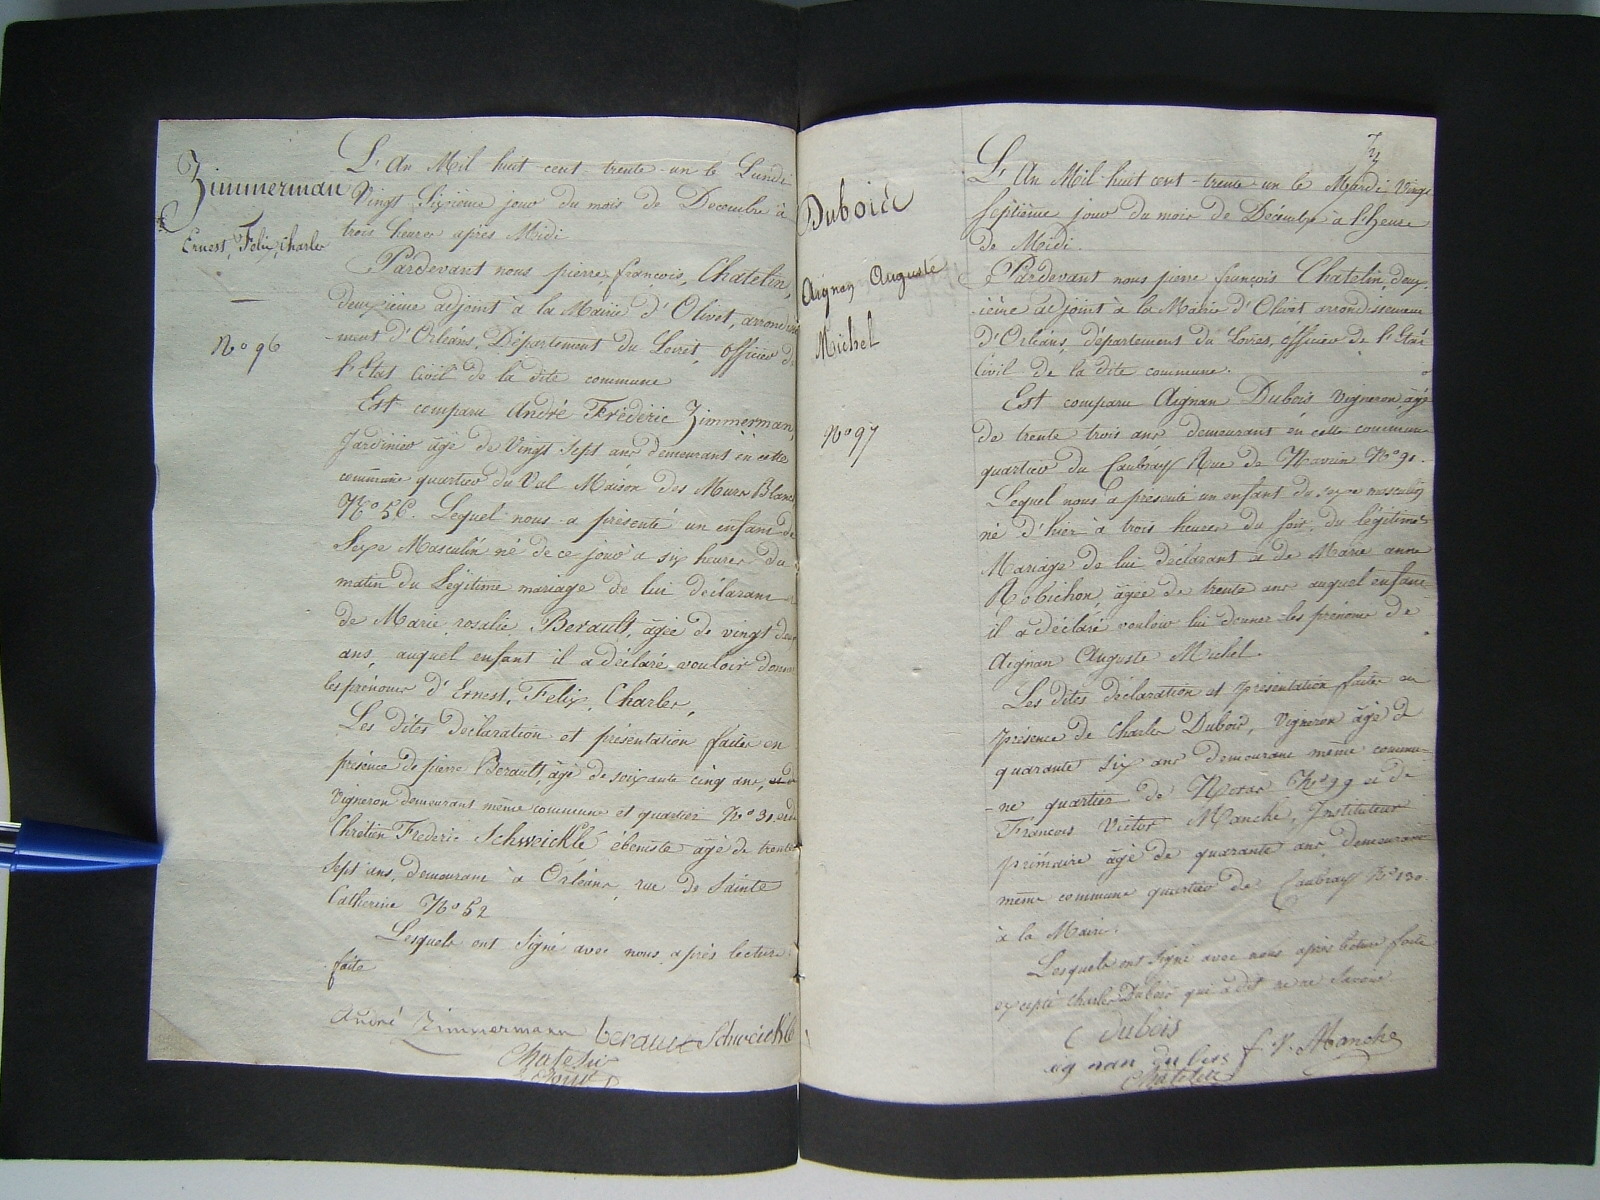 Zimmerman
Ernest, Felix, Charles
N.o 96
L'An Mil huit cent trente-un le Lundi
Vingt Sixième jour du mois de Decembre à
trois heures après Midi
Pardevant nous pierre, françois, Chatelin,
deuxième adjoint à la Mairie d'Olivet, arrondisse
-ment d'Orléans, Département du Loiret, officier de
l'Etat Civil de la dite commune
Est comparu André Fréderic Zimmerman,
Jardinier âgé de Vingt Sept ans demeurant en cette
commune quartier du Val Maison des Murs Blancs
N.o 56. Lequel nous a présenté un enfant de
Sexe Masculin né de ce jour à six heures du
matin du Légitime mariage de lui déclarant et
de Marie rosalie Berault, âgée de vingt deux
ans, auquel enfant il a déclaré vouloir donner
les prénoms d'Ernest, Felix, Charles,
Les dites déclaration et présentation faites en
présence de pierre Berault, âgé de soixante cinq ans,
Vigneron demeurant même commune et quartier N.o 31 et de
Chrétien Frederic Schweicklé ébeniste âgé de trente
Sept ans, demeurant à Orléans, rue de Sainte
Catherine N.o 52
Lesquels ont Signé avec nous, après lecture
faite
André Zimmermann berault Schweicklé
Chatelin
adjoint
Duboice
Aignan Auguste
Michel
N.o 97
L'An Mil-huit cent-trente-un le Mardi Vingt
Septième jour du mois de Décembre à l'heure
de Midi.
Pardevant nous pierre françois Chatelin, deux-
-ième adjoint à la Mairie d'Olivet arrondissement
d'Orléans, département du Loiret, officier de l'Etat
Civil de la dite commune.
Est comparu Aignan Dubois Vigneron, âgé
de trente trois ans demeurant en cette commune
quartier du Caubray Rue de N.o 91.
Lequel nous a présenté un enfant du sexe masculin
né d'hier à trois heures du soir, du légitime
Mariage de lui déclarant et de Marie anne
Robichon, âgée de trente ans auquel enfant
il a déclaré vouloir lui donner les prénoms de
Aignan Auguste Michel.
Les dites déclaration et présentation faites en
présence de Charles Dubois, Vigneron âgé de
quarante six ans demeurant même commu-
-ne quartier de N.o 99 et de
François Victor Manche, Instituteur
primaire âgé de quarante ans demeurant
même commune quartier de Caubray N.o 130.
à la Mairie.
Lesquels ont Signé avec nous après lecture faite
excepté Charles Dubois qui a dit ne le Savoir.
C Dubois
aignan du bois f. V. Manche
Chatelin